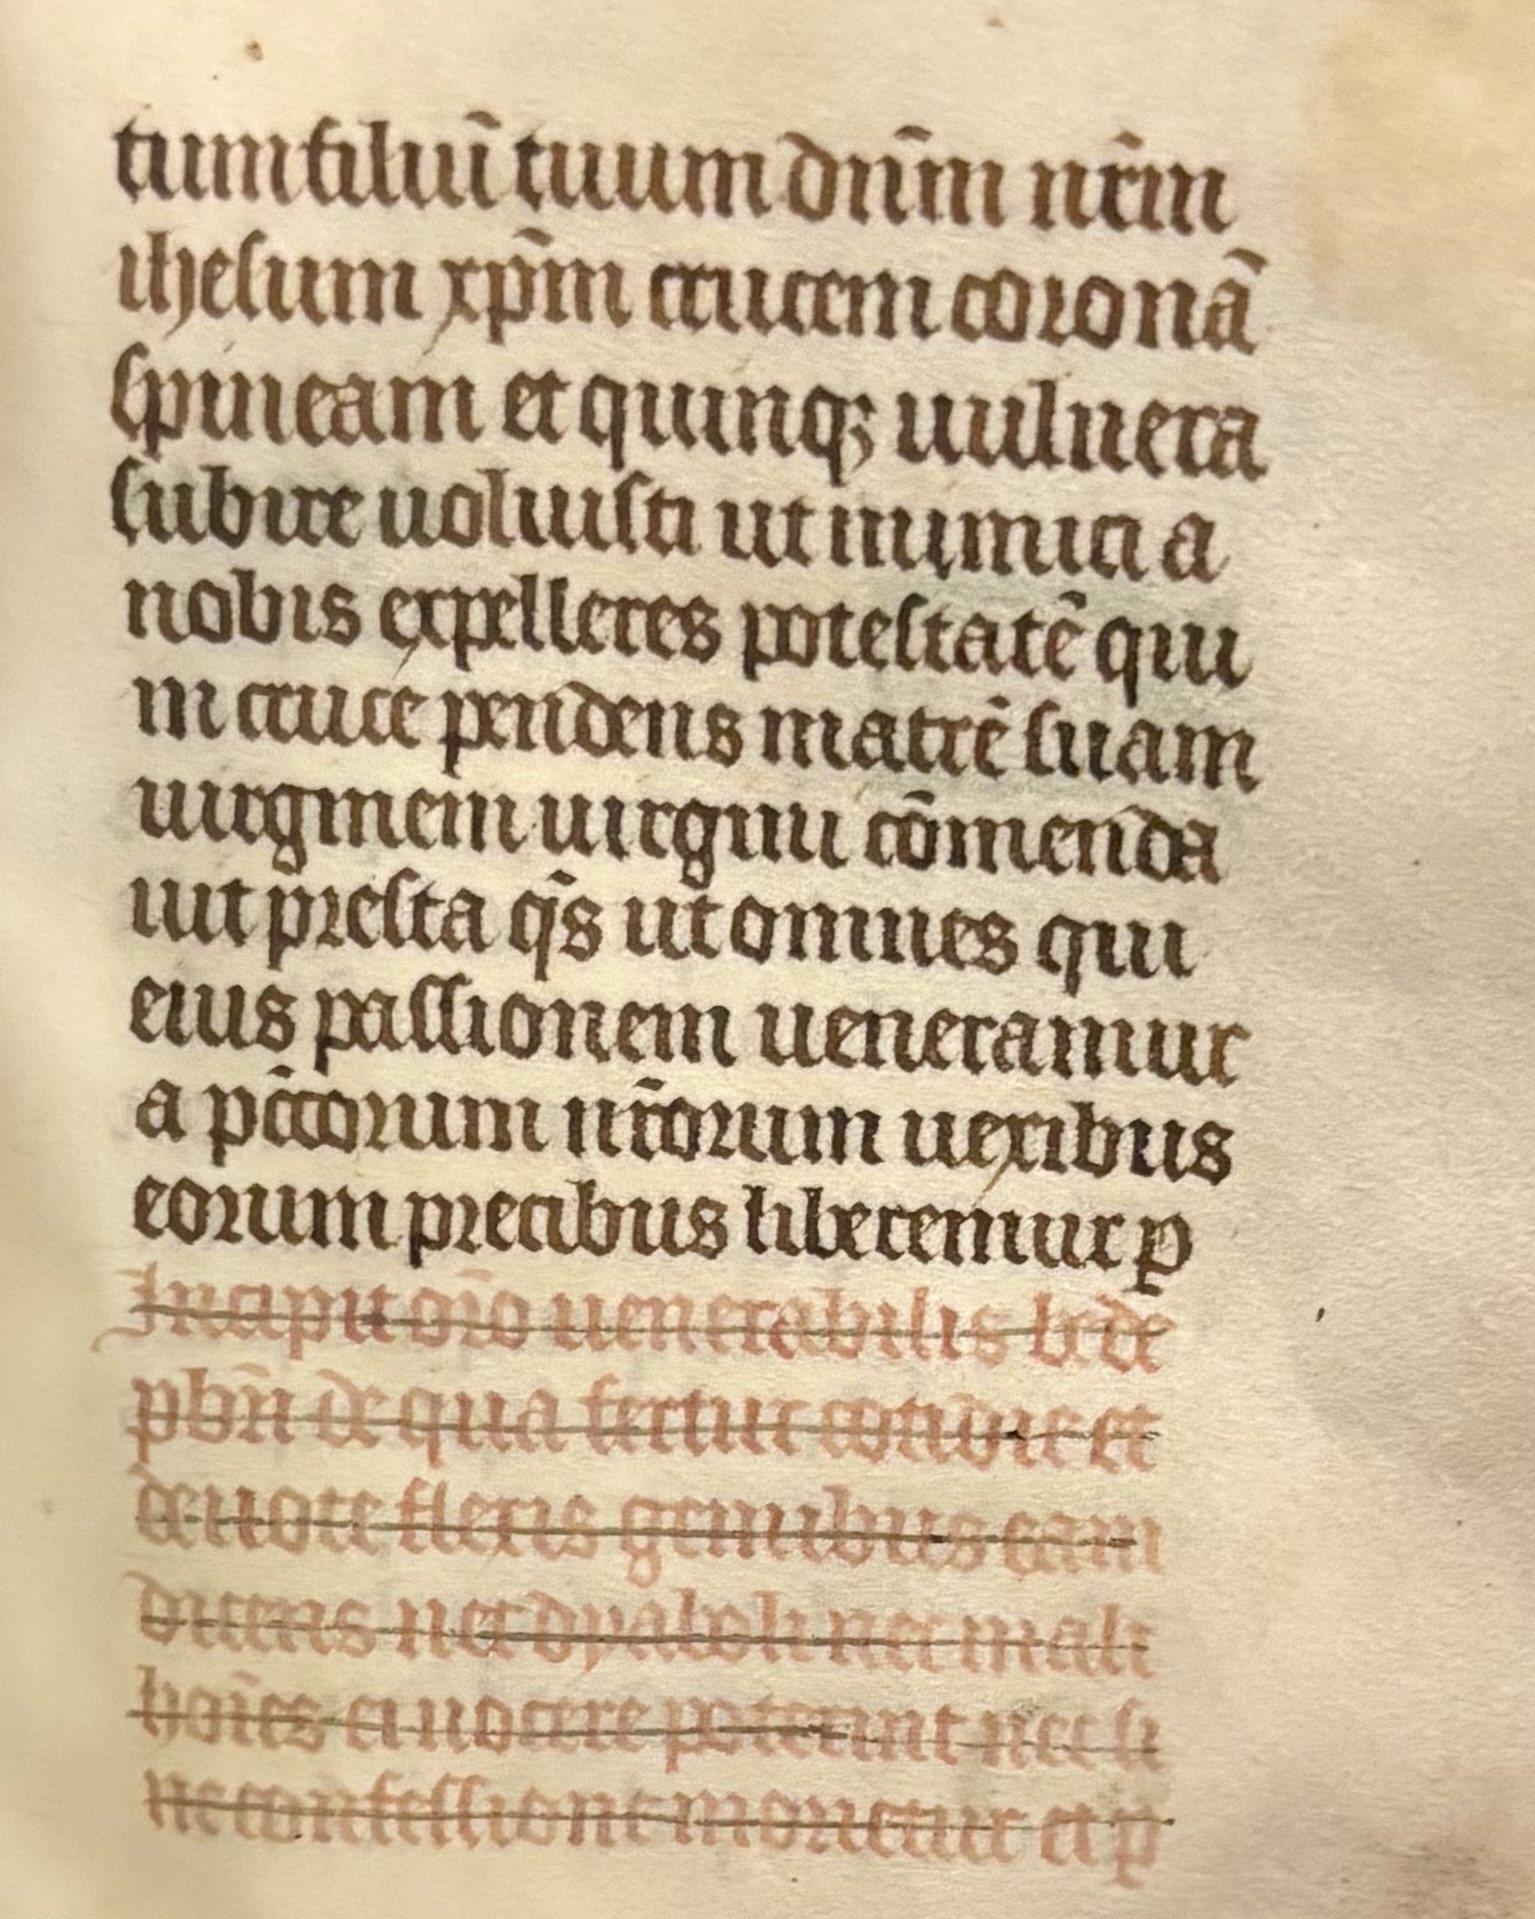 tum filiuī tuum dnm̄ nrm̄
ihesum xpm̄ crucem coronā
spineam et quinqꝫ uulnera
subire uoluisti ut inimici a
nobis expelleres potestatē qui
in cruce pendens matrē suam
uirginem uirgini cōmenda
uit presta qs̄ ut omnes qui
eius passionem ueneramur
a pcc̄orum nr̄orum nexibus
eorum precibus liberemur p
Incipit oro̅ uenerabilis bede
pbri̅ de qua fertur cotidie et
deuote flexis genibus eam
dicens nec dyaboli nec mali
hoi̅es ei nocere poterint nec si
ne confessione morietur et p